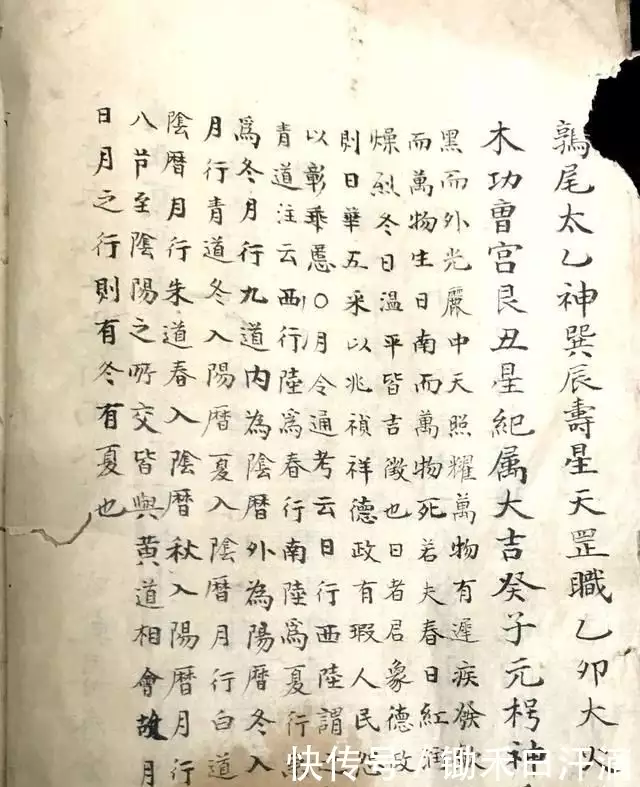 鶉尾太乙神巽辰壽星天罡職乙卯大火
木功曹宫艮丑星紀属大吉癸子元枵神
黑而外光麗中天照耀萬物有遲疾發
而萬物生日南而萬物死若夫春日紅潤
燥烈冬日温平皆吉徵也日者君象德政
則日華五采以兆禎祥德政有瑕人民
以彰乖慝〇月令通考云日行西陸謂
青道注云西行陸爲春行南陸爲夏行
爲冬月行九道内為陰曆外為陽曆冬入
月行青道冬入陽曆夏入陰曆月行白道
陰曆月行朱道春入陰曆秋入陽曆月行
八节至陰陽之所交皆與黄道相會故月
日月之行則有冬有夏也
快传号 / 锄禾日汗滴